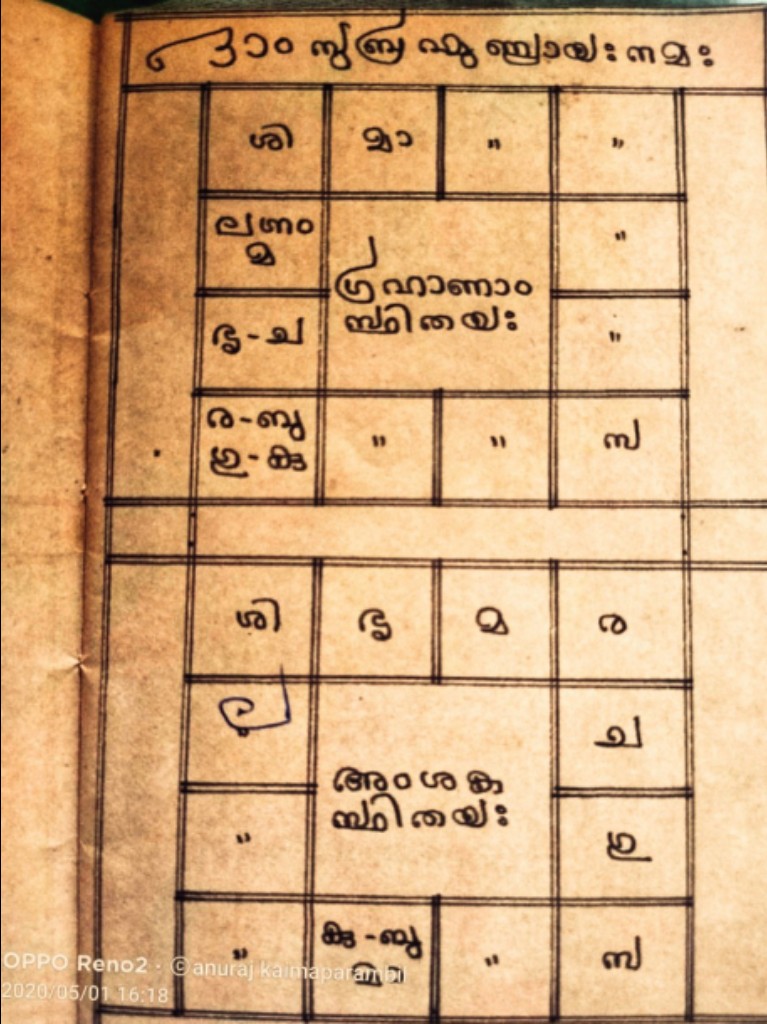 ഓം സുബ്രഹ്മണ്യായഃ നമഃ
ശി മാ " "
ലഗ്നം
മ
"
ഗ്രഹാണാം
സ്ഥിതയഃ
ഭൃ-ച "
ര-ബു
ഗു-കു
" " സ
ശി ഭൃ മ ര
ല
ച
അംശക
സ്ഥിതയഃ
" ഗു
"
കു-ബു
" സ
OPPO Reno2 · ©anuraj kaimaparambil
2020/05/01 16:18